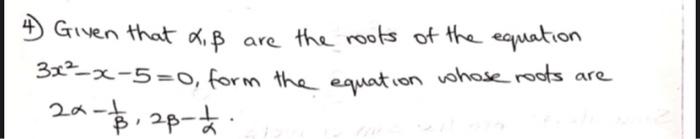 4) Given that α,β are the roots of the equation
3x²-x-5=0, form the equation whose roots are
2α-1/β, 2β-1/α.